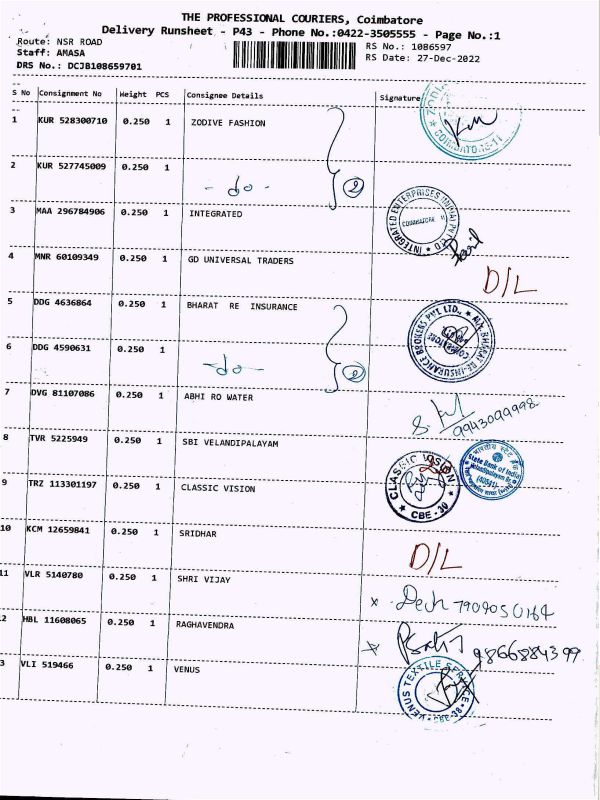 THE PROFESSIONAL COURIERS, Coimbatore
Delivery Runsheet - P43 - Phone No.:0422-3505555 - Page No.:1
Route: NSR ROAD
Staff: AMASA
DRS No.: DCJB108659701
RS No.: 1086597
RS Date: 27-Dec-2022
S No Consignment No Weight PCS Consignee Details Signature
1 KUR 528300710 0.250 1 ZODIVE FASHION
2 KUR 527745009 0.250 1 - do - 2
3 MAA 296784906 0.250 1 INTEGRATED
INTEGRATED ENTERPRISES
COIMBATORE
4 MNR 60109349 0.250 1 GD UNIVERSAL TRADERS D/L
5 DDG 4636864 0.250 1 BHARAT RE INSURANCE
6 DDG 4590631 0.250 1 -do- 2
7 DVG 81107086 0.250 1 ABHI RO WATER 9943099998
8 TVR 5225949 0.250 1 SBI VELANDIPALAYAM
State Bank of India
9 TRZ 113301197 0.250 1 CLASSIC VISION
CLASSIC VISION
CBE - 30
10 KCM 12659841 0.250 1 SRIDHAR D/L
11 VLR 5140780 0.250 1 SHRI VIJAY
2 HBL 11608065 0.250 1 RAGHAVENDRA 9866884399
3 VLI 519466 0.250 1 VENUS
VENUS TEXTILE SERVICE
CBE-38